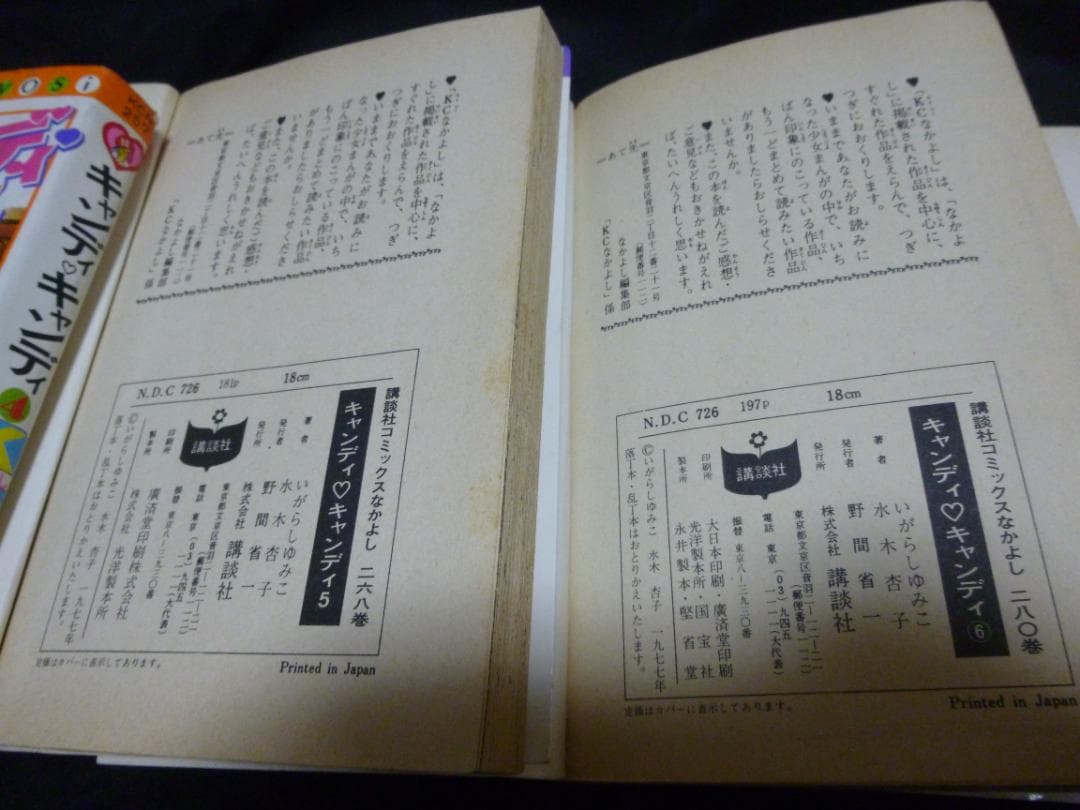 yosi
キャンディ♡キャンディ
♥「KCなかよし」は、「なかよ
し」に掲載された作品を中心に、
すぐれた作品をえらんで、つぎ
つぎにおおくりします。
♥いままであなたがお読みに
なった少女まんがの中で、いち
ばん印象にのこっている作品、
もう一どまとめて読みたい作品
がありましたらおしらせくださ
いませんか。
♥また、この本を読んだご感想・
ご意見などもおきかせねがえれ
ば、たいへんうれしく思います。
―あて先―
東京都文京区音羽二丁目十二番二十一号
(郵便番号一一二)
なかよし編集部
「KCなかよし」係
N.D.C 726 181p 18cm
講談社コミックスなかよし 二六八巻
キャンディ♡キャンディ5
著者 いがらしゆみこ
水木杏子
発行者 野間省一
発行所 株式会社 講談社
東京都文京区音羽二―一二―二一
(郵便番号一一二)
電話 東京(03)九四五―一一一一(大代表)
振替 東京八―三九三〇番
印刷所 廣済堂印刷株式会社
製本所 株式会社 光洋製本所
©いがらしゆみこ 水木 杏子 一九七七年
落丁本・乱丁本はおとりかえいたします。
講談社
定価はカバーに表示してあります。
Printed in Japan
♥「KCなかよし」は、「なかよ
し」に掲載された作品を中心に、
すぐれた作品をえらんで、つぎ
つぎにおおくりします。
♥いままであなたがお読みに
なった少女まんがの中で、いち
ばん印象にのこっている作品、
もう一どまとめて読みたい作品
がありましたらおしらせくださ
いませんか。
♥また、この本を読んだご感想・
ご意見などもおきかせねがえれ
ば、たいへんうれしく思います。
―あて先―
東京都文京区音羽二丁目十二番二十一号
(郵便番号一一二)
なかよし編集部
「KCなかよし」係
N.D.C 726 197p 18cm
講談社コミックスなかよし 二八〇巻
キャンディ♡キャンディ⑥
著者 いがらしゆみこ
水木杏子
発行者 野間省一
発行所 株式会社 講談社
東京都文京区音羽二―一二―二一
(郵便番号一一二)
電話 東京(03)九四五―一一一一(大代表)
振替 東京八―三九三〇番
印刷所 大日本印刷・廣済堂印刷
製本所 光洋製本所・国宝社
永井製本・堅省堂
©いがらしゆみこ 水木 杏子 一九七七年
落丁本・乱丁本はおとりかえいたします。
講談社
定価はカバーに表示してあります。
Printed in Japan